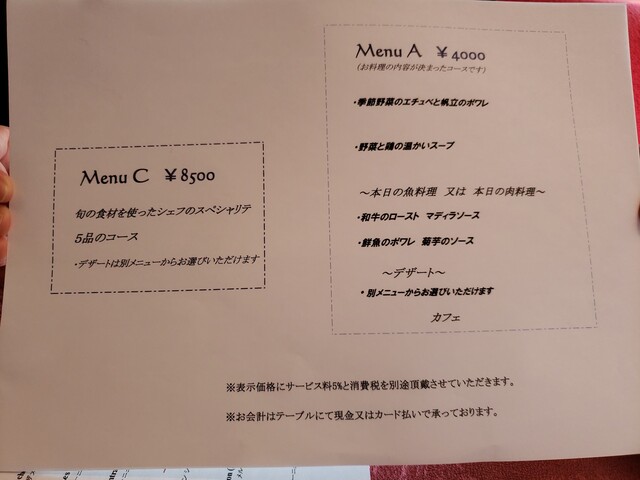 Menu A ¥4000
(お料理の内容が決まったコースです)
・季節野菜のエチュベと帆立のポワレ
・野菜と鶏の温かいスープ
～本日の魚料理 又は 本日の肉料理～
・和牛のロースト マディラソース
・鮮魚のポワレ 菊芋のソース
～デザート～
・別メニューからお選びいただけます
カフェ
Menu C ¥8500
旬の食材を使ったシェフのスペシャリテ
5品のコース
・デザートは別メニューからお選びいただけます
※表示価格にサービス料5%と消費税を別途頂戴させていただきます。
※お会計はテーブルにて現金又はカード払いで承っております。